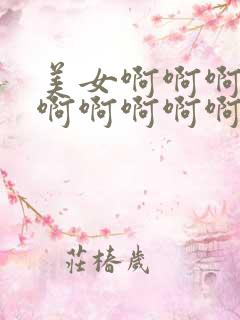 美女啊啊啊
啊啊啊啊啊
莊椿歲